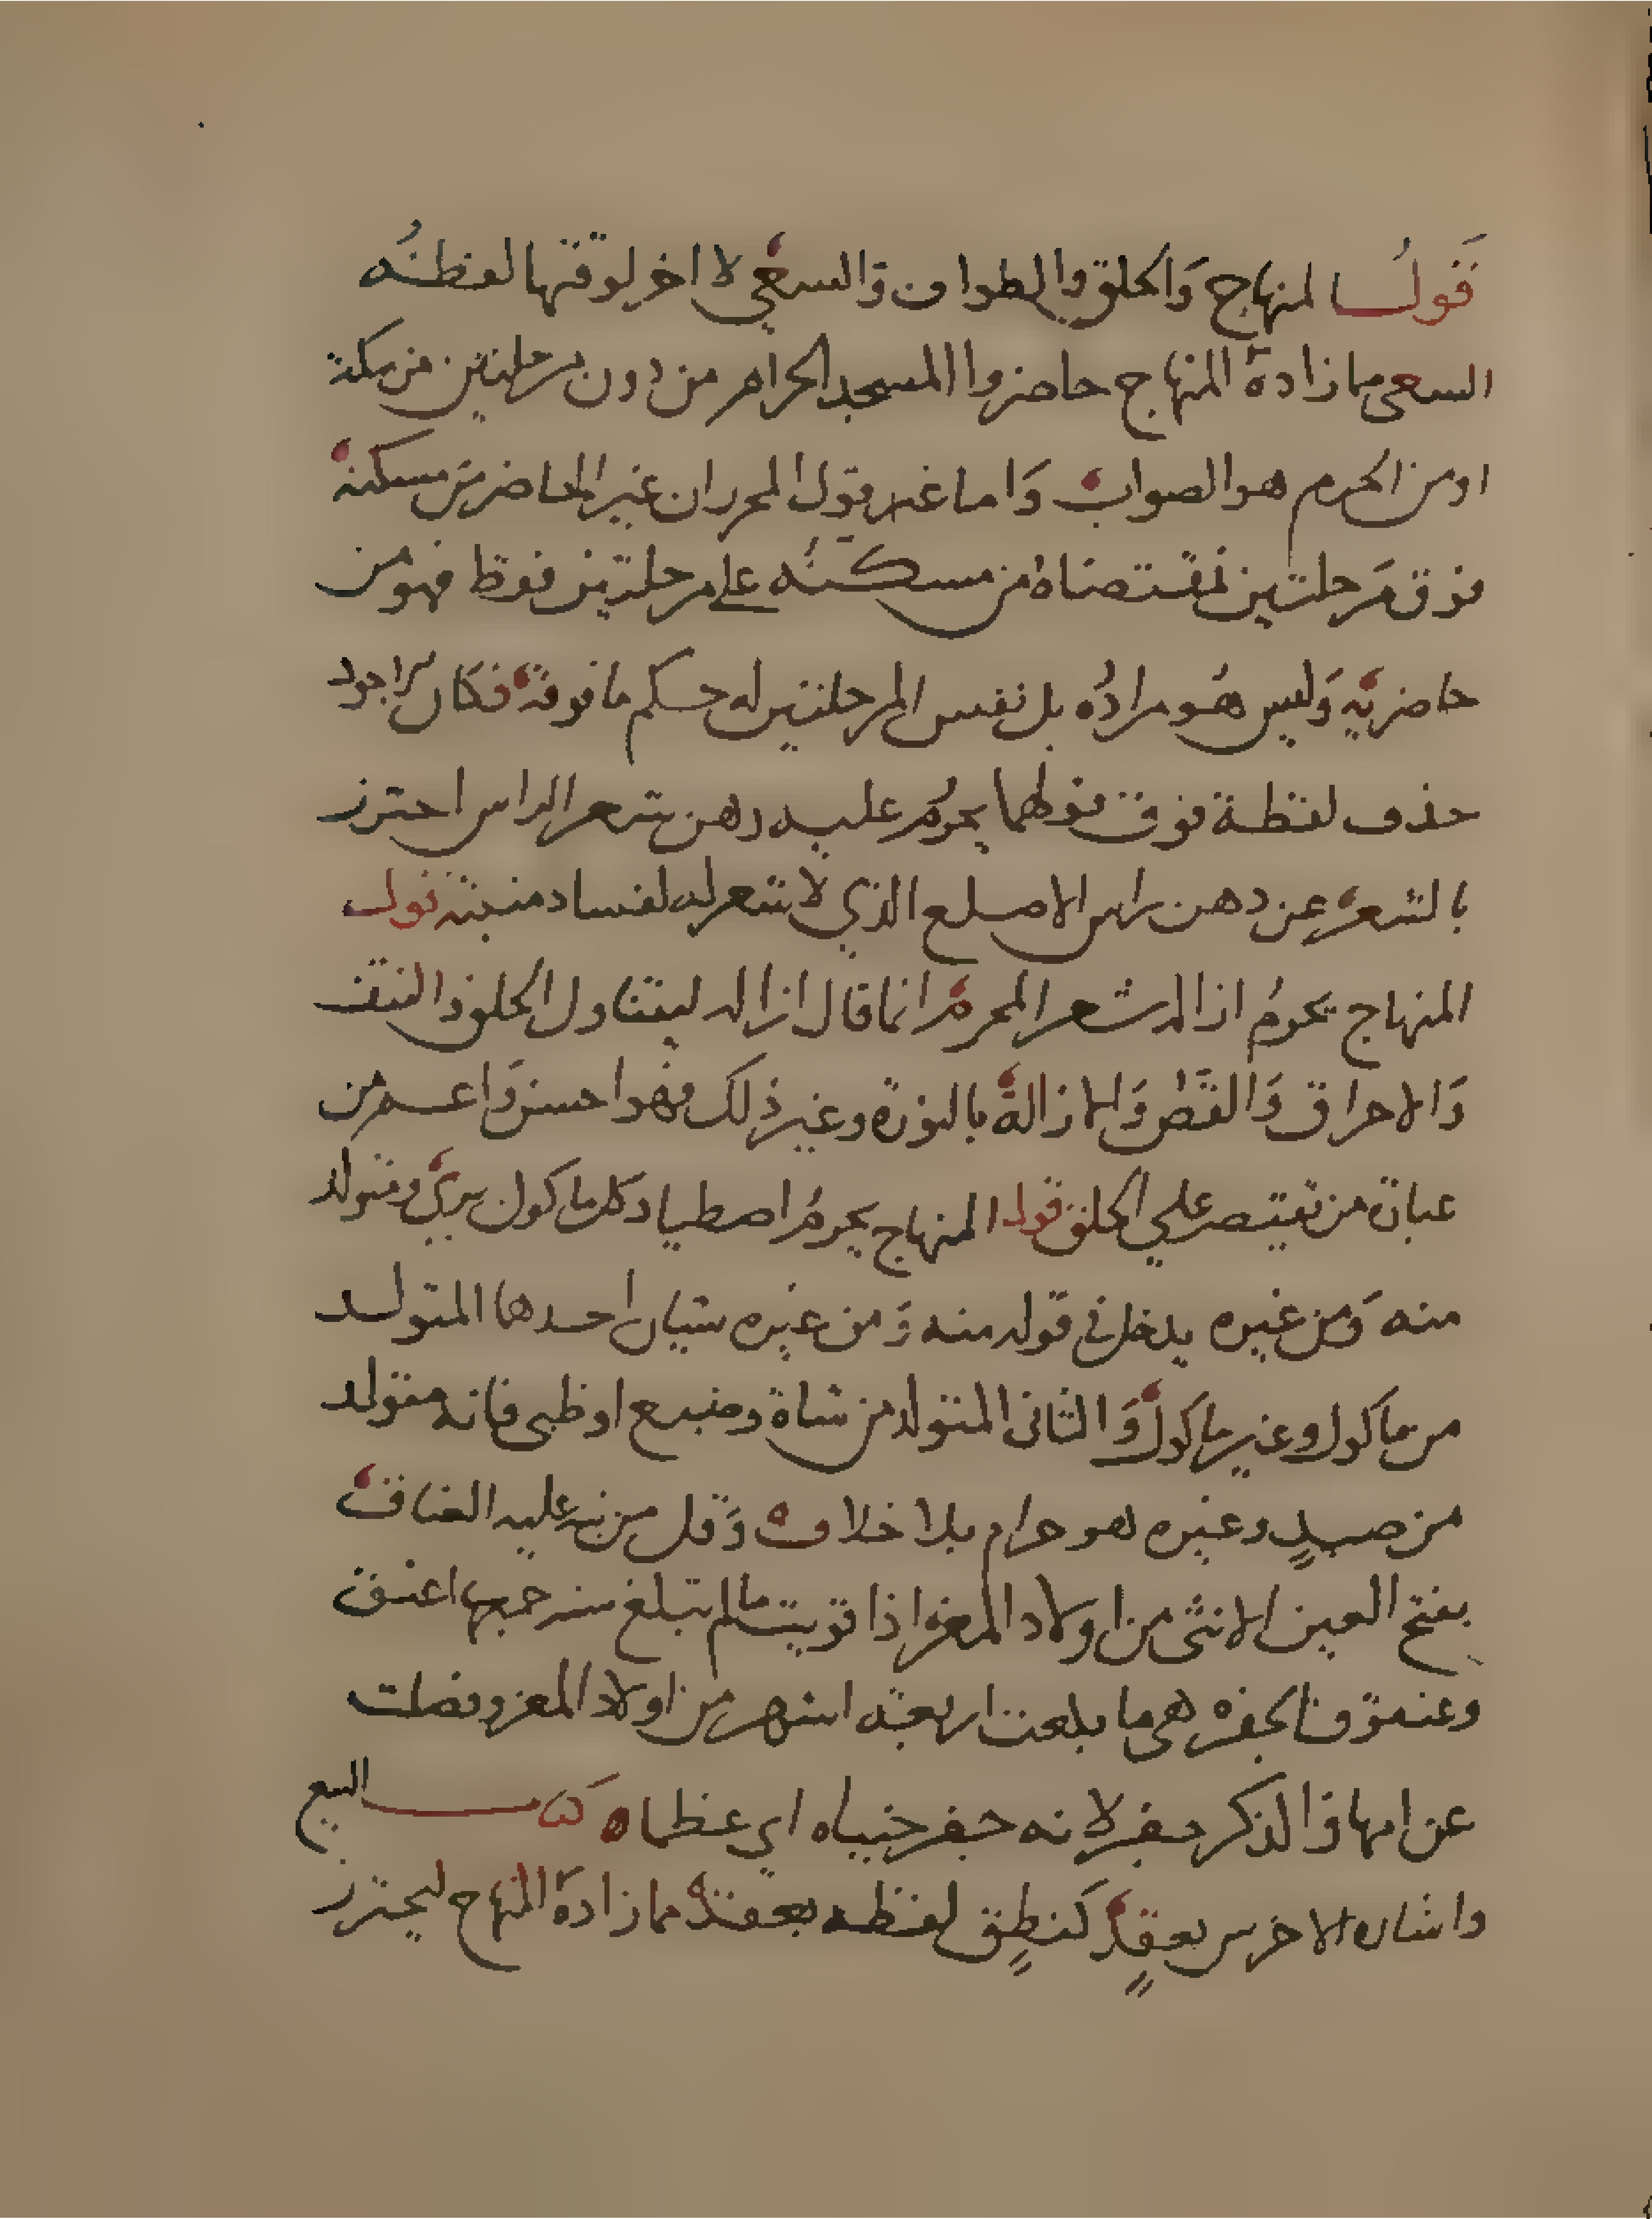 قَولُ المنهاج وَالحلق والطواف وَالسعي لا اخر لوقتها لفظـَـُه
السعي مما زادهَ المنهاج حاضروا المسجد الحرام من دون مرحلتين من مكة
او من الحرم هو الصواب وَاما قول المحرر ان غير الحاضر من مسكنه
فوق مَرحلتين فمقتضاهُ من مسكنُه على مرحلتين فقط فهو من
حاضريه وَليس هُو مرادُه بل نفس المرحلتين له حكم ما فوقه فكان الاجود
حذف لفظة فوق قولهما يحرُم عليه دهن شعر الراس احترز
بالشعر عن دهن راس الاصلع الذي لا شعر له لفساد منبته قول
المنهاج يحرمُ ازالة شعر المحرم انما قال ازالة ليتناول الحلق والنتف
وَالاحراق وَالقَص وَالازالة بالنورة وغير ذلك فهو احسن وَاعم من
عبارة من يقتصر علي الحلق قوله المنهاج يحرمُ اصطياد كل ماكول بري ومتولد
منه وَمن غيره يدخل في قوله منه وَمن غيره شيان احدها المتولد
من ماكول وغير ماكول وَالثاني المتولد من شاة وضبع او ظبي فانه متولد
من صيدٍ وغيره فهو حرام بلا خلاف وَقل من نبه عليه العناق
بفتح العين الانثى من اولاد المعز اذا قويت ما لم تبلغ سنه جمعها اعنق
وعنوق الجفره هي ما بلغت اربعة اشهر من اولاد المعز وفصلت
عن امها وَالذكر جفر لانه جفر جنباه اي عظما ه كتاب البيع
واشاره الاخرس بعقدٍ كنطقٍ لفظه بعقد مما زادهَ المنهاج ليحترز